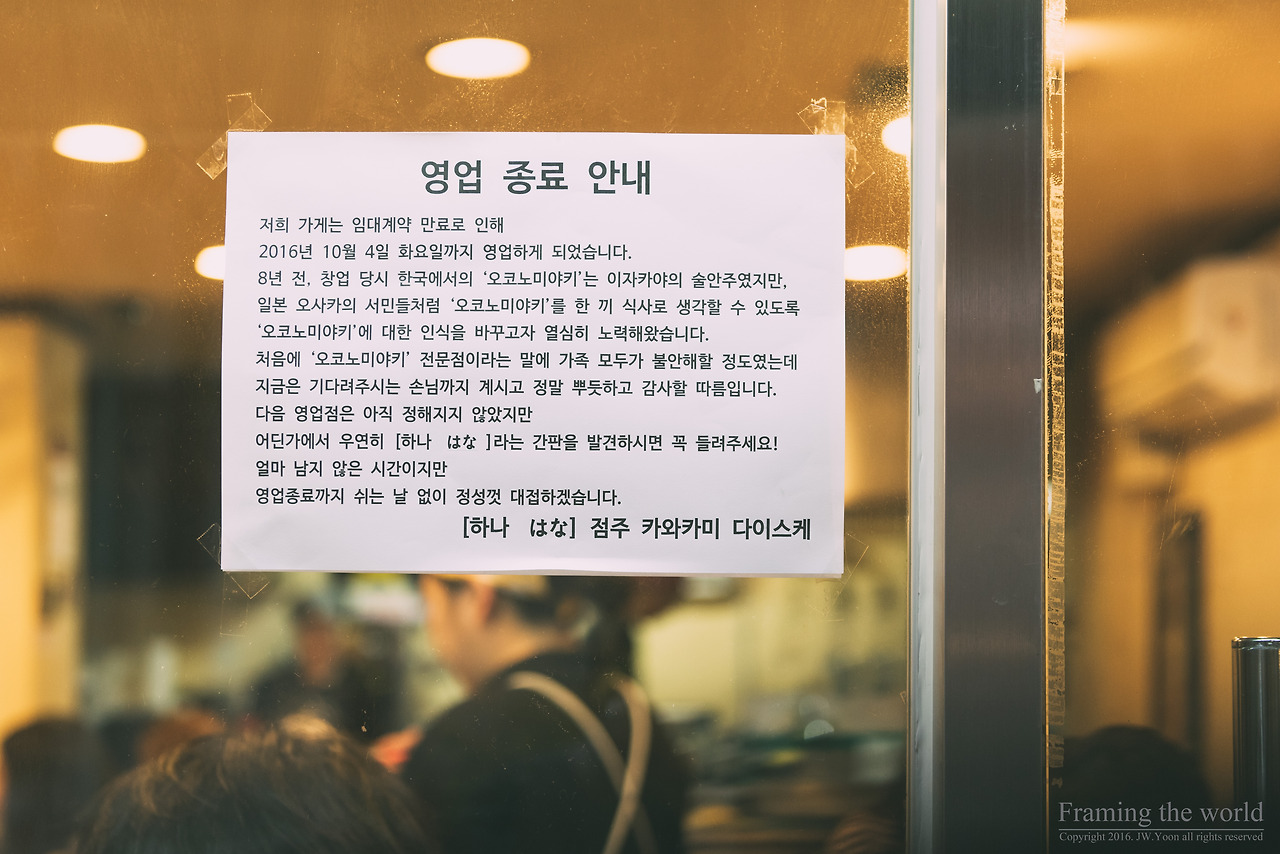 영업 종료 안내
저희 가게는 임대계약 만료로 인해
2016년 10월 4일 화요일까지 영업하게 되었습니다.
8년 전, 창업 당시 한국에서의 ‘오코노미야키’는 이자카야의 술안주였지만,
일본 오사카의 서민들처럼 ‘오코노미야키’를 한 끼 식사로 생각할 수 있도록
‘오코노미야키’에 대한 인식을 바꾸고자 열심히 노력해왔습니다.
처음에 ‘오코노미야키’ 전문점이라는 말에 가족 모두가 불안해할 정도였는데
지금은 기다려주시는 손님까지 계시고 정말 뿌듯하고 감사할 따름입니다.
다음 영업점은 아직 정해지지 않았지만
어딘가에서 우연히 [하나 はな ]라는 간판을 발견하시면 꼭 들려주세요!
얼마 남지 않은 시간이지만
영업종료까지 쉬는 날 없이 정성껏 대접하겠습니다.
[하나 はな] 점주 카와카미 다이스케
Framing the world
Copyright 2016. JW.Yoon all rights reserved